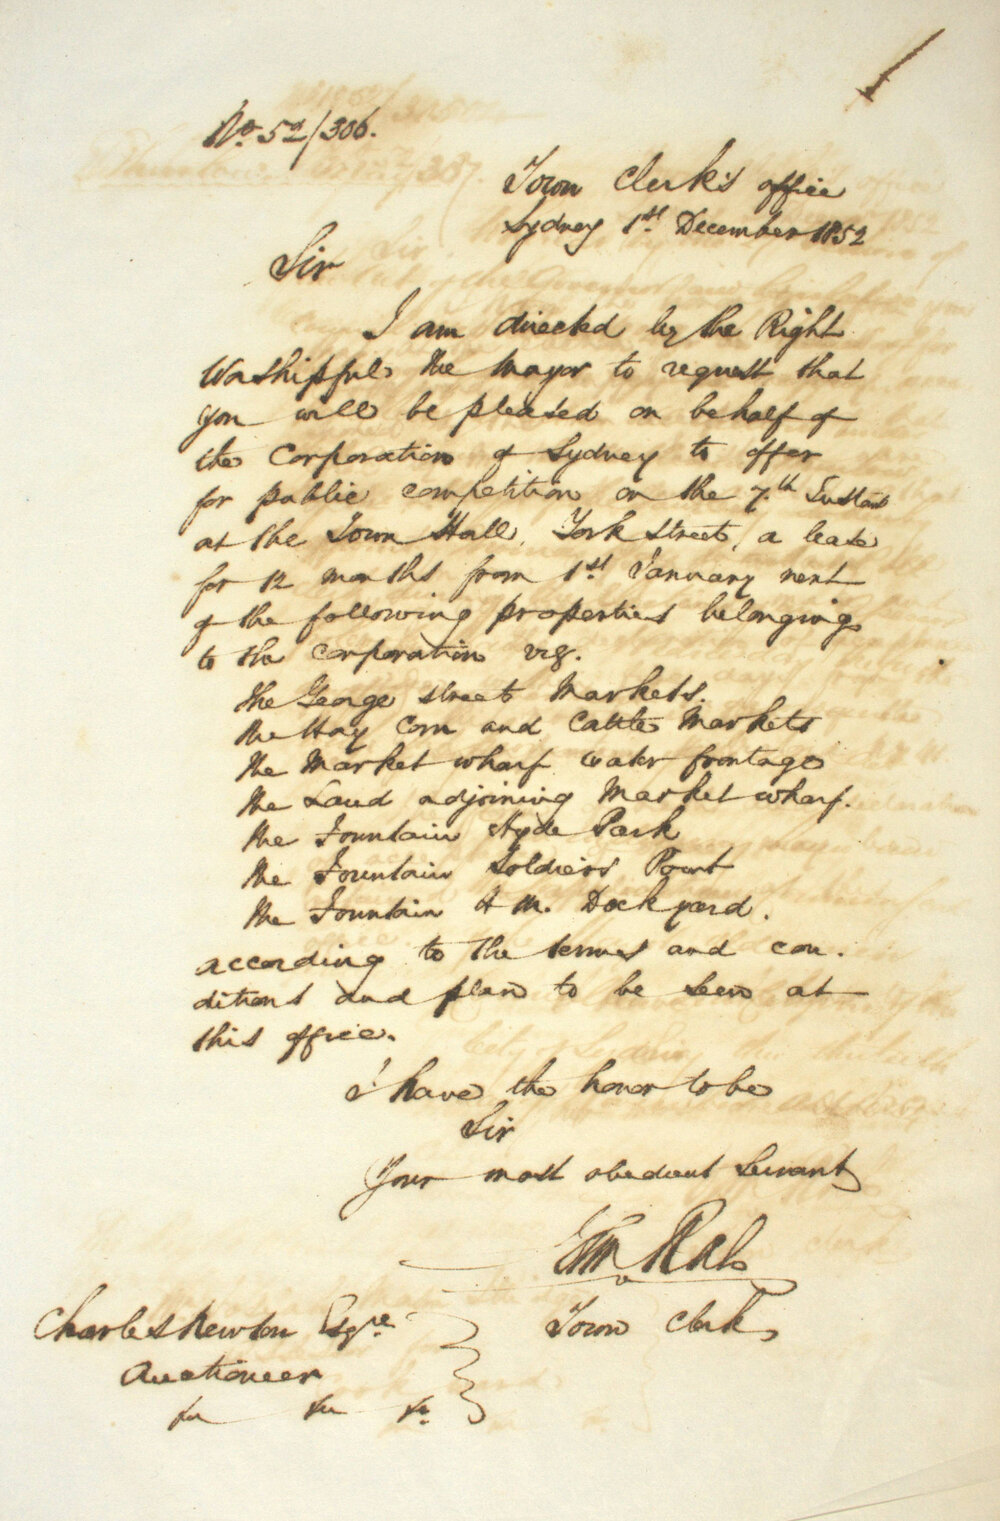 No. 52/306.
Town Clerk's office
Sydney 1st. December 1852
Sir
I am directed by the Right
Worshipful the Mayor to request that
you will be pleased on behalf of
the Corporation of Sydney to offer
for public competition on the 7.th Instant
at the Town Hall, York Street, a lease
for 12 months from 1st January next
of the following properties belonging
to the corporation viz.
The George street Markets.
the Hay Corn and Cattle Markets
the Market wharf water frontage
the Land adjoining Market wharf.
the Fountain Hyde Park
the Fountain Soldiers Point
the Fountain H M. Dockyard.
according to the terms and con.
ditions and plan to be seen at
this office.
I have the honor to be
Sir
Your most obedient Servant
Town Clerk
Charles Newton Esqre
Auctioneer